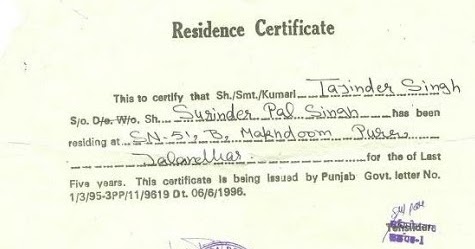 Residence Certificate
This to certify that Sh./Smt./Kumari Tajinder Singh
S/o. D/o. W/o. Sh. Surinder Pal Singh has been
residing at SN-51, B, Makhdoom Pura,
Jalandhar for the of Last
Five years. This certificate is being issued by Punjab Govt. letter No.
1/3/95-3PP/11/9619 Dt. 06/6/1996.